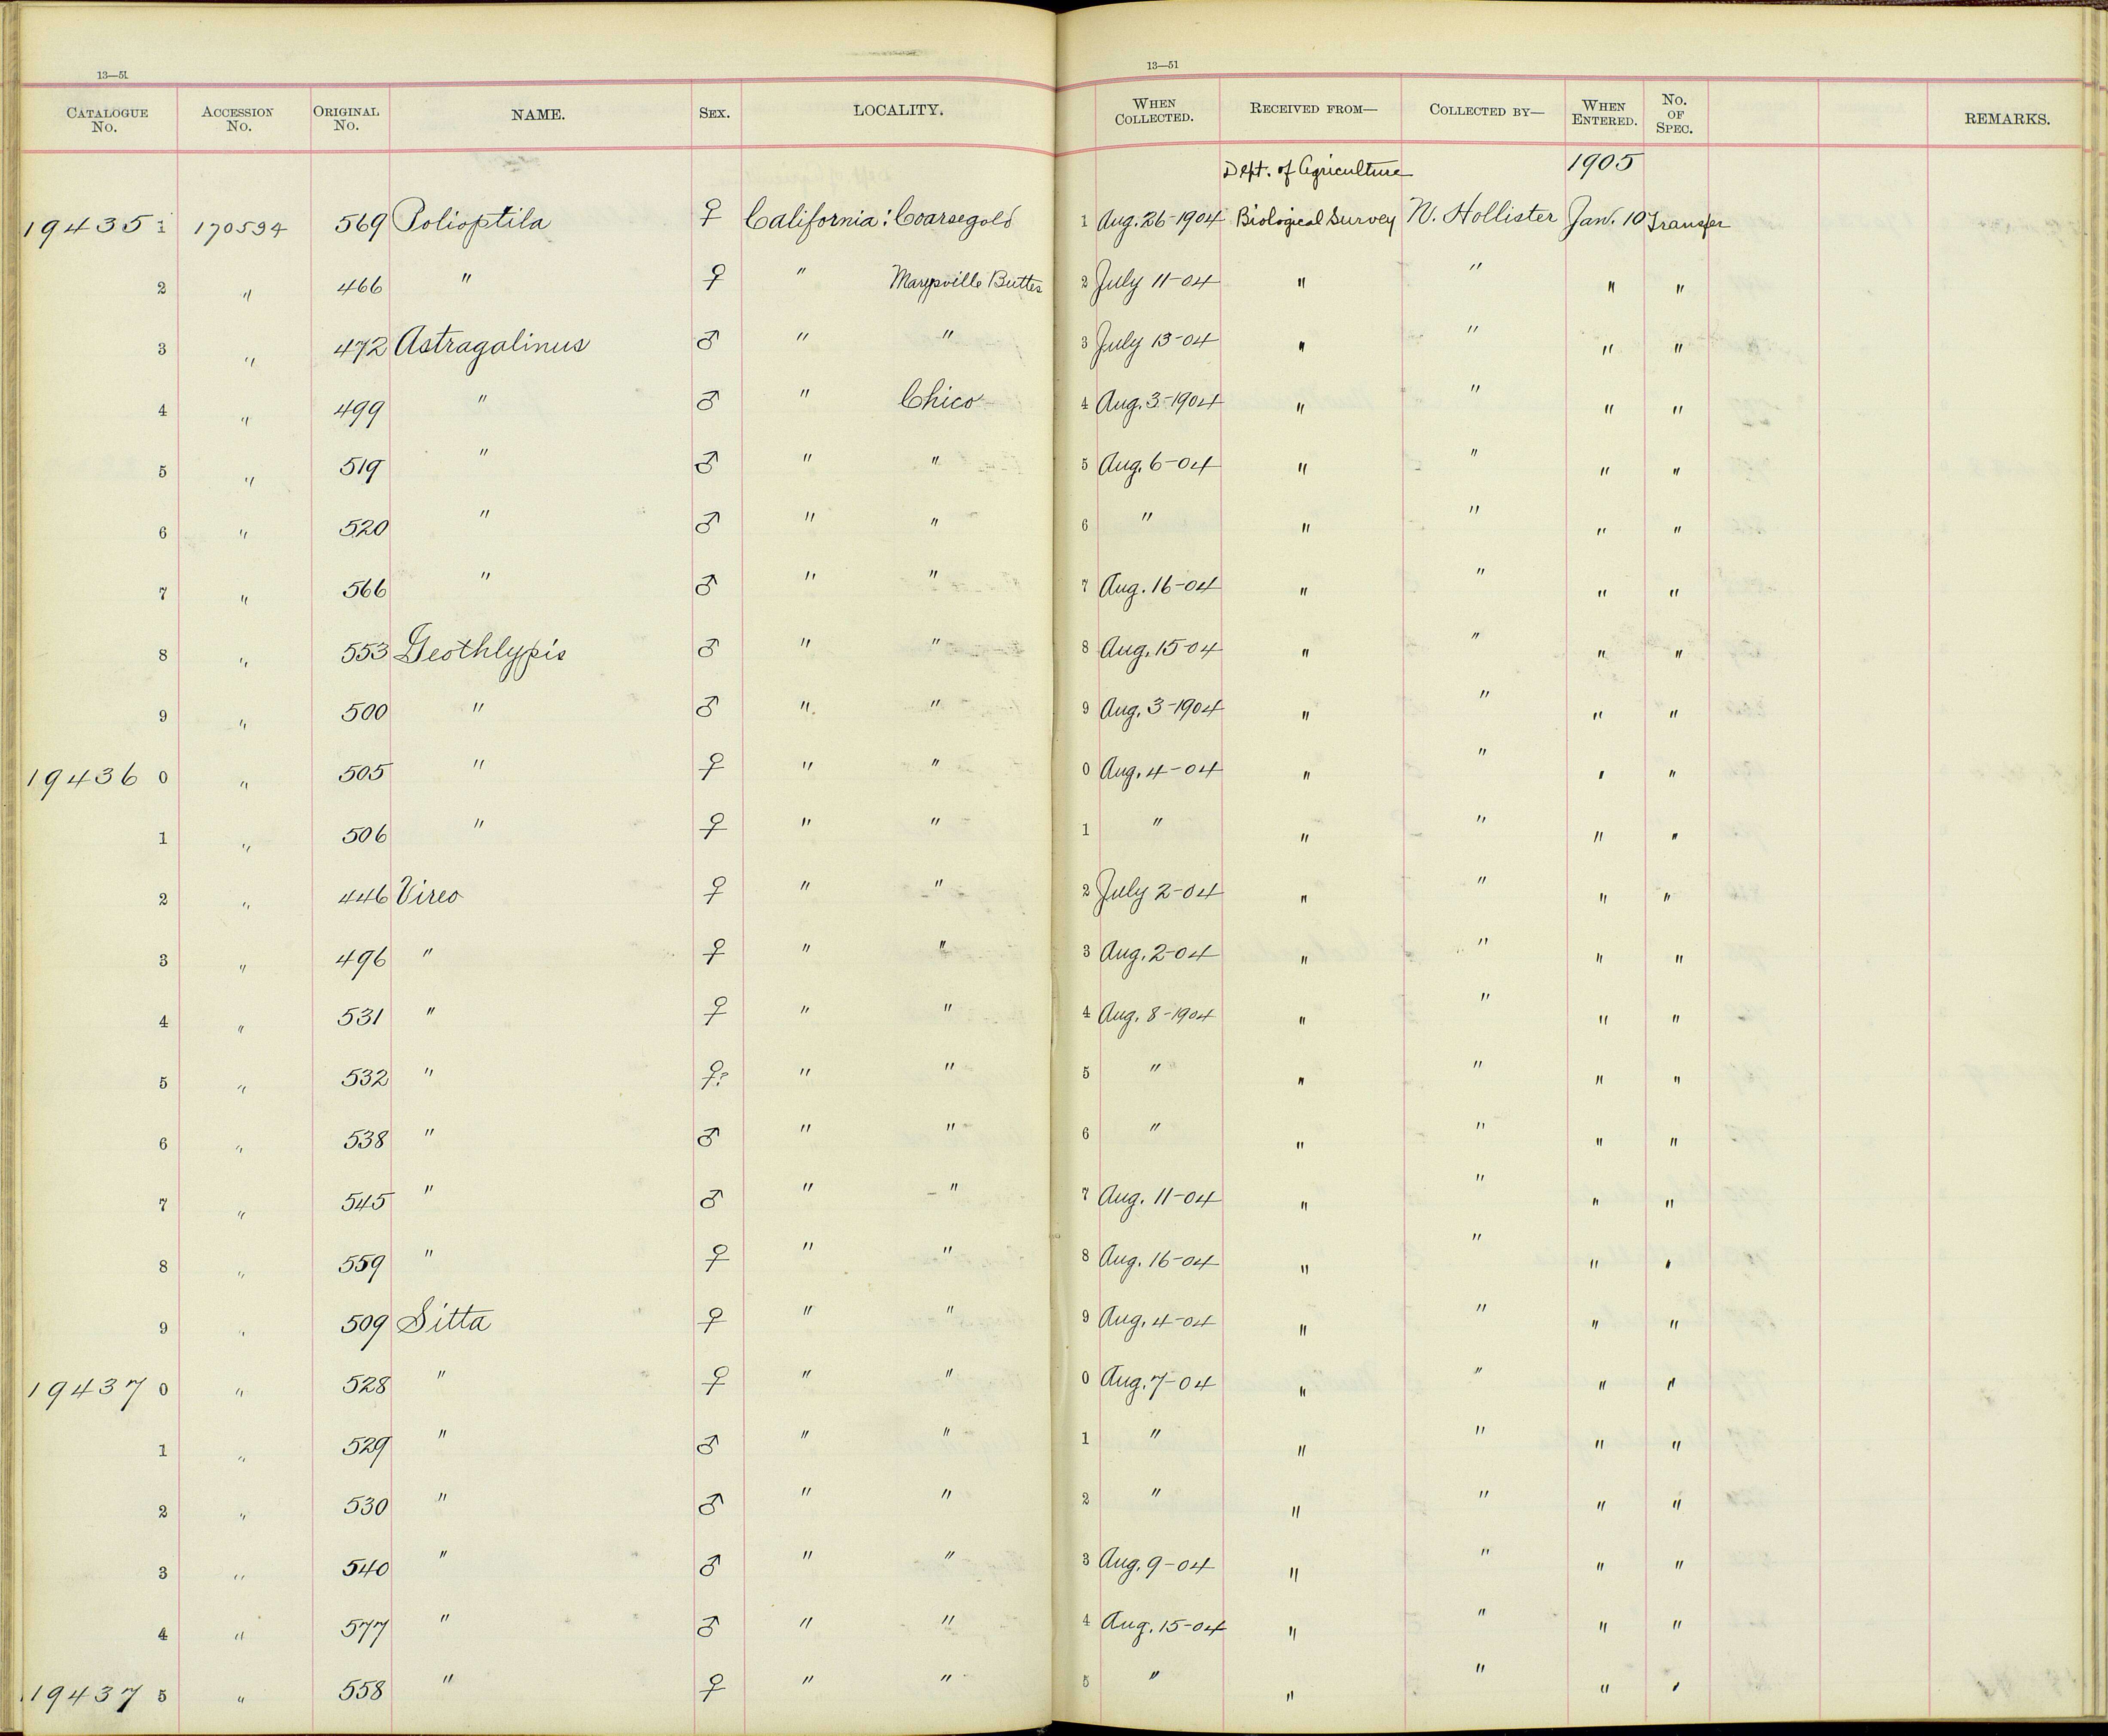 13—51
13—51
CATALOGUE No. ACCESSION No. ORIGINAL No. NAME. SEX. LOCALITY. WHEN COLLECTED. RECEIVED FROM— COLLECTED BY— WHEN ENTERED. No. OF SPEC. REMARKS.
Dept. of Agriculture 1905
19435 1 170594 569 Polioptila ♀ California: Coarsegold 1 Aug. 26-1904 Biological Survey N. Hollister Jan. 10 Transfer
2 " 466 " ♀ " Marysville Buttes 2 July 11-04 " " " "
3 " 472 Astragalinus ♂ " " 3 July 13-04 " " " "
4 " 499 " ♂ " Chico 4 Aug. 3-1904 " " " "
5 " 519 " ♂ " " 5 Aug. 6-04 " " " "
6 " 520 " ♂ " " 6 " " " " "
7 " 566 " ♂ " " 7 Aug. 16-04 " " " "
8 " 553 Geothlypis ♂ " " 8 Aug. 15-04 " " " "
9 " 500 " ♂ " " 9 Aug. 3-1904 " " " "
19436 0 " 505 " ♀ " " 0 Aug. 4-04 " " " "
1 " 506 " ♀ " " 1 " " " " "
2 " 446 Vireo ♀ " " 2 July 2-04 " " " "
3 " 496 " ♀ " " 3 Aug. 2-04 " " " "
4 " 531 " ♀ " " 4 Aug. 8-1904 " " " "
5 " 532 " ♀? " " 5 " " " " "
6 " 538 " ♂ " " 6 " " " " "
7 " 545 " ♂ " " 7 Aug. 11-04 " " " "
8 " 559 " ♀ " " 8 Aug. 16-04 " " " "
9 " 509 Sitta ♀ " " 9 Aug. 4-04 " " " "
19437 0 " 528 " ♀ " " 0 Aug. 7-04 " " " "
1 " 529 " ♂ " " 1 " " " " "
2 " 530 " ♂ " " 2 " " " " "
3 " 540 " ♂ " " 3 Aug. 9-04 " " " "
4 " 577 " ♂ " " 4 Aug. 15-04 " " " "
19437 5 " 558 " ♀ " " 5 " " " " "